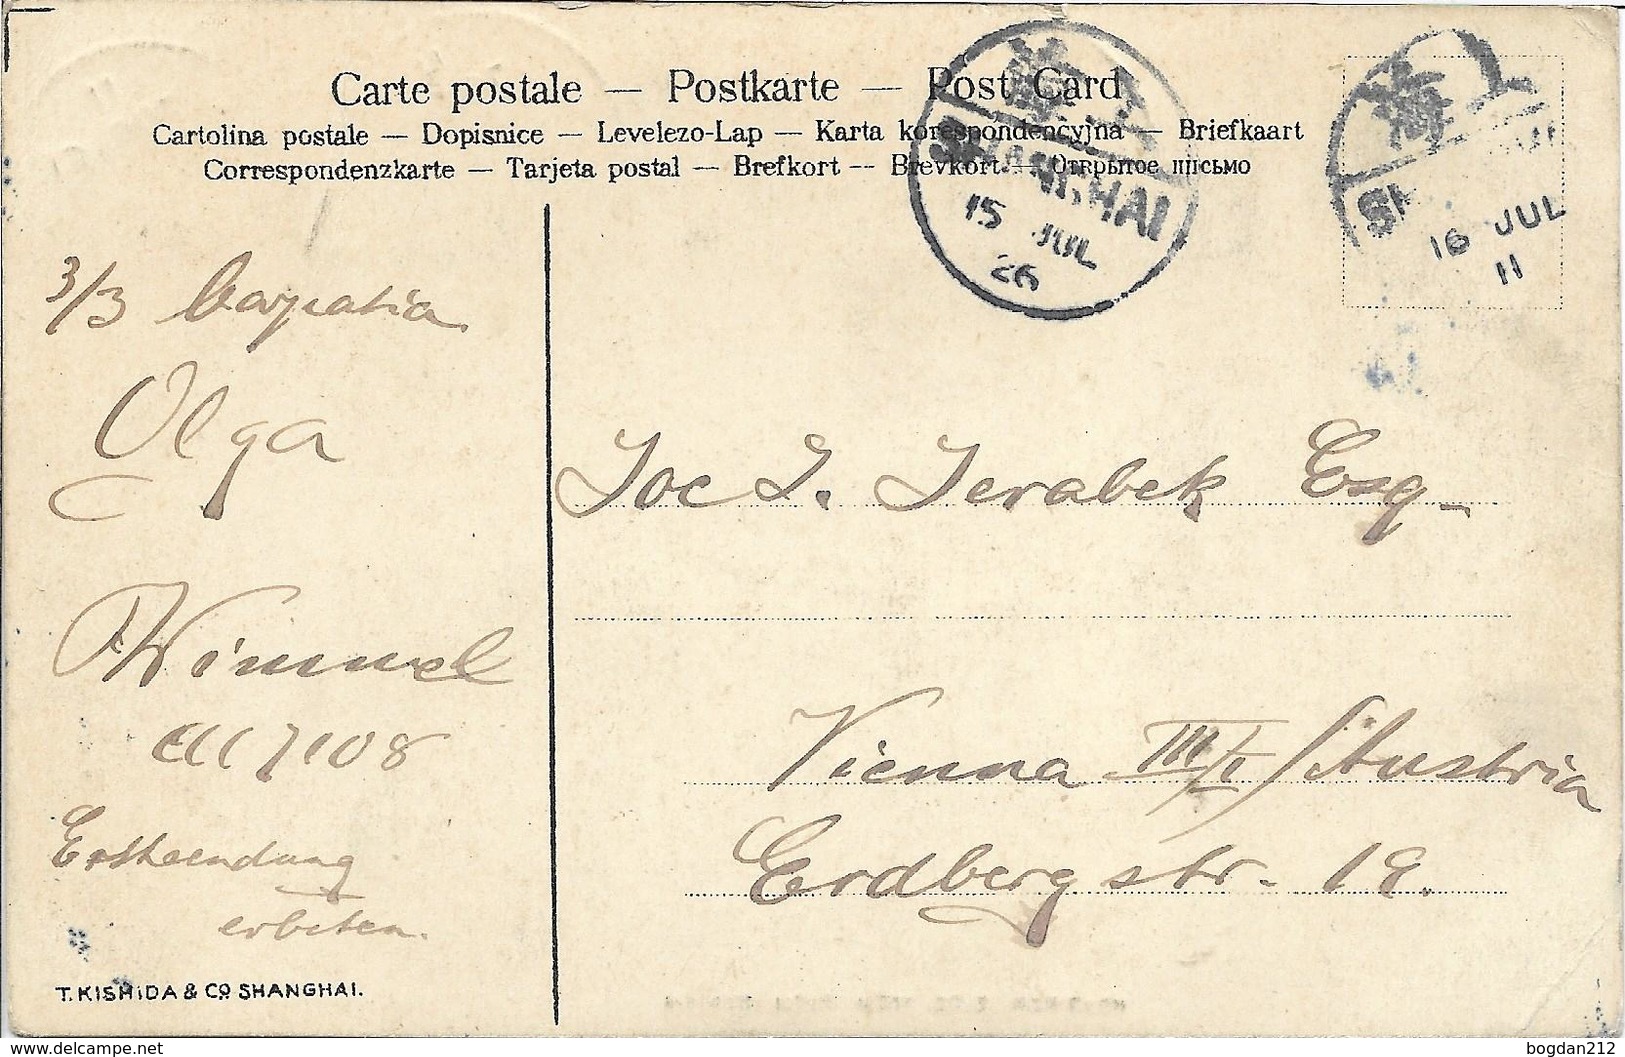 Carte postale — Postkarte — Post Card
Cartolina postale — Dopisnice — Levelezo-Lap — Karta korespondencyjna — Briefkaart
Correspondenzkarte — Tarjeta postal — Brefkort -- Brevkort — Открытое письмо
SHANGHAI
15 JUL
26
16 JUL
11
3/3
Olga
Wimmel
7108
erbeten.
Joe J. Jerabek Esq-
Vienna III/I / Austria
Erdbergstr. 19.
T. KISHIDA & Co SHANGHAI.
delcampe.net
bogdan212